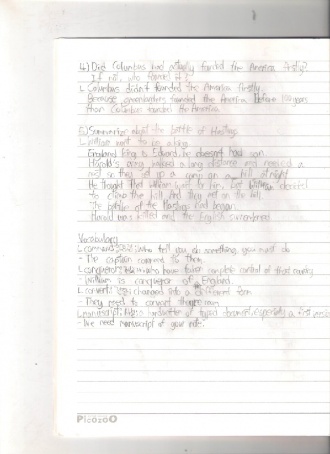 4) Did Columbus had actually founded the America firstly?
If not, who founded it?
L Columbus didn't founded the America firstly.
Because greenlanders founded the America before
than Columbus founded the America.
5) Summarize about the battle of Hasting.
L William want to be a king.
England king is Edward, he doesn't had son.
Harold's army walked a long distance and needed a
rest so they set up a camp on a hill at night.
He thought that William wait for him, but William decided
to climb the hill and they met on the hill.
The battle of the Hastings had began.
Harold was killed and the English surrendered
Vocabulary
L command: who tell you do something, you must do
- The captain command to them.
L conqueror: who have taken complete control of that country
- William is conqueror of England.
L convert: changed into a different form
- They need to convert room
L manuscript: a handwritten or typed document, especially a first
- We need manuscript of your note.
PicozoO